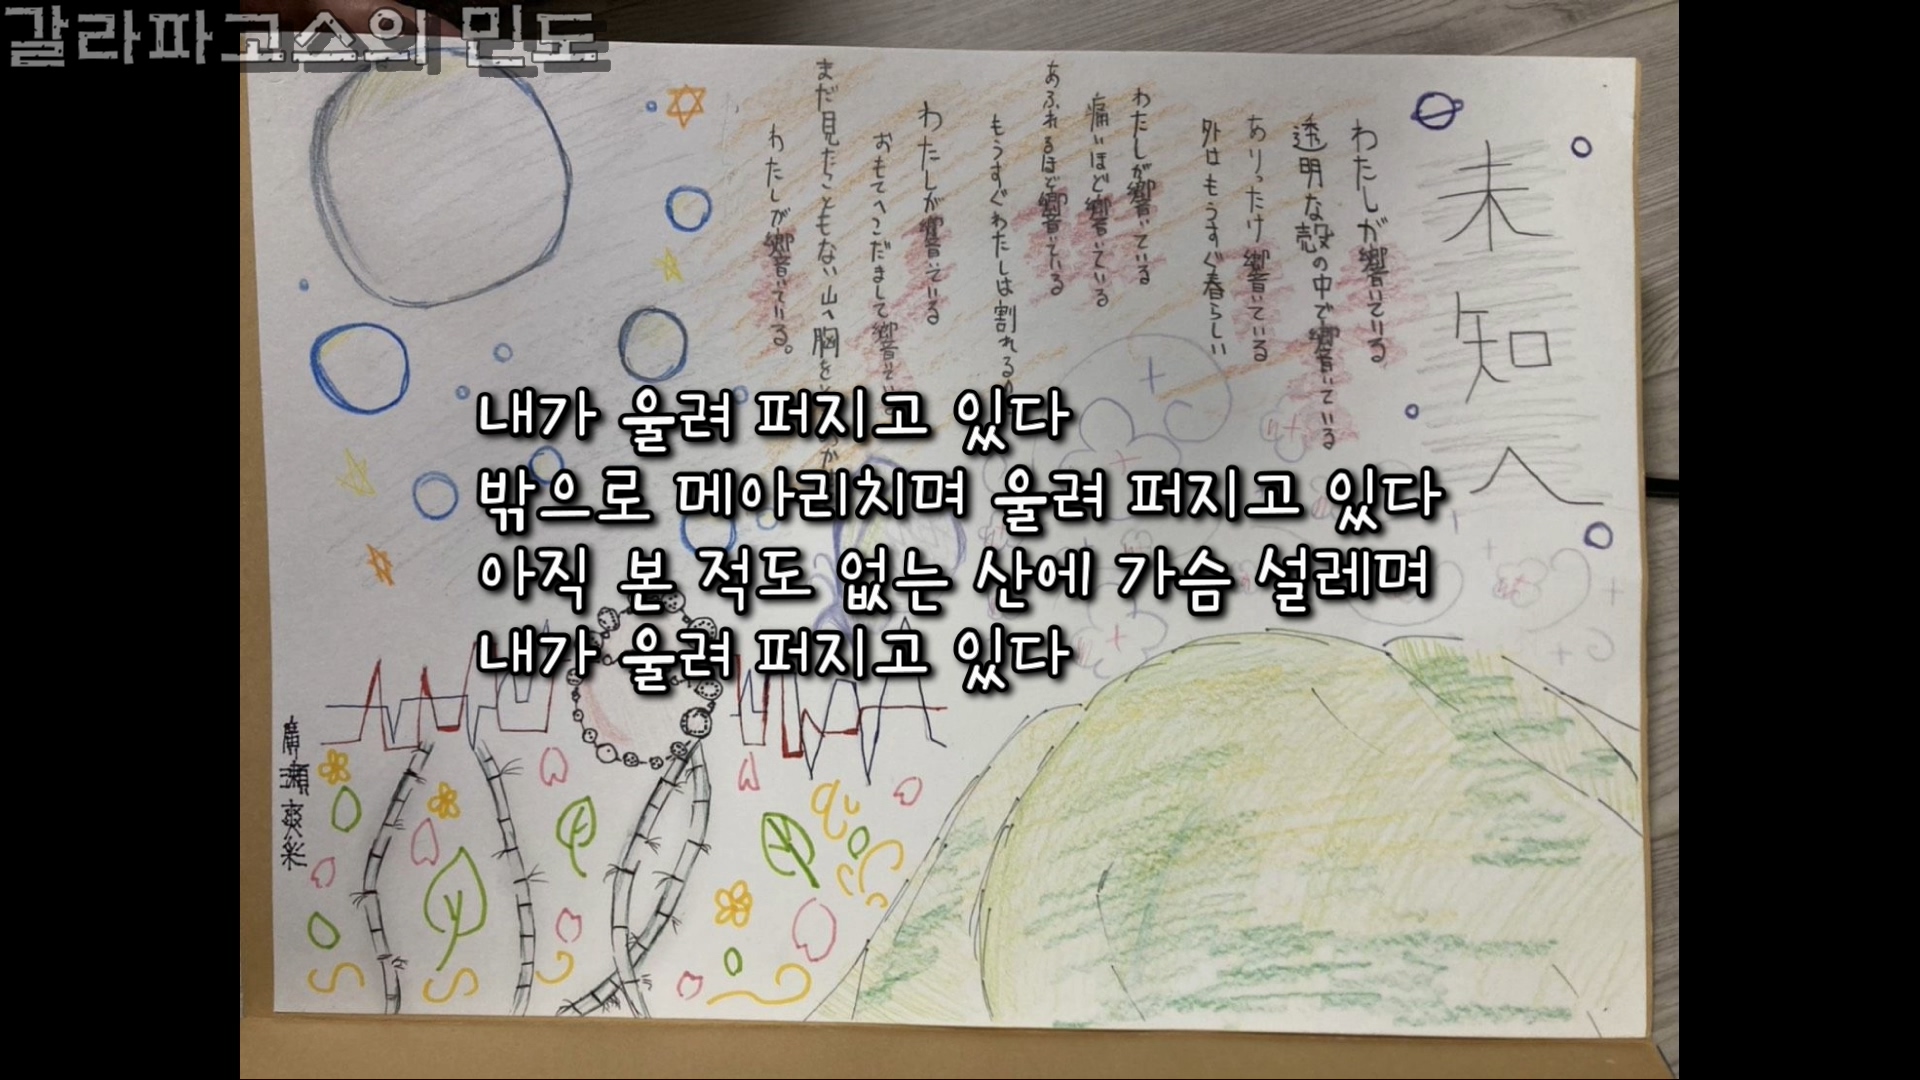 갈라파고스의 민도
未知へ
わたしが響いている
透明な殻の中で響いている
ありったけ響いている
外はもうすぐ春らしい
わたしが響いている
痛いほど響いている
あふれるほど響いている
もうすぐわたしは割れる
わたしが響いている
おもてへこだまして響いて
まだ見たこともない山へ胸を
わたしが響いている。
내가 울려 퍼지고 있다
밖으로 메아리치며 울려 퍼지고 있다
아직 본 적도 없는 산에 가슴 설레며
내가 울려 퍼지고 있다
廣瀬爽彩